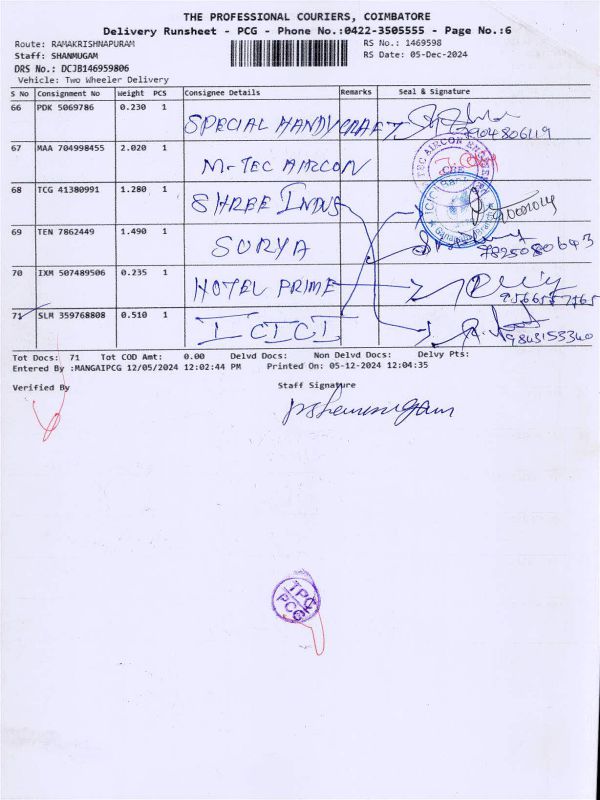 THE PROFESSIONAL COURIERS, COIMBATORE
Delivery Runsheet - PCG - Phone No.:0422-3505555 - Page No.:6
Route: RAMAKRISHNAPURAM RS No.: 1469598
Staff: SHANMUGAM RS Date: 05-Dec-2024
DRS No.: DCJB146959806
Vehicle: Two Wheeler Delivery
S No Consignment No Weight PCS Consignee Details Remarks Seal & Signature
66 PDK 5069786 0.230 1 SPECIAL HANDYCRAFT 7904806119
67 MAA 704998455 2.020 1 M-TEC AIRCON
68 TCG 41380991 1.280 1 SHREE INDUS
69 TEN 7862449 1.490 1 SURYA 7825080643
70 IXM 507489506 0.235 1 HOTEL PRIME
71 SLM 359768808 0.510 1 ICICI 9843153340
Tot Docs: 71 Tot COD Amt: 0.00 Delvd Docs: Non Delvd Docs: Delvy Pts:
Entered By :MANGAIPCG 12/05/2024 12:02:44 PM Printed On: 05-12-2024 12:04:35
Verified By Staff Signature
TPC
PCG